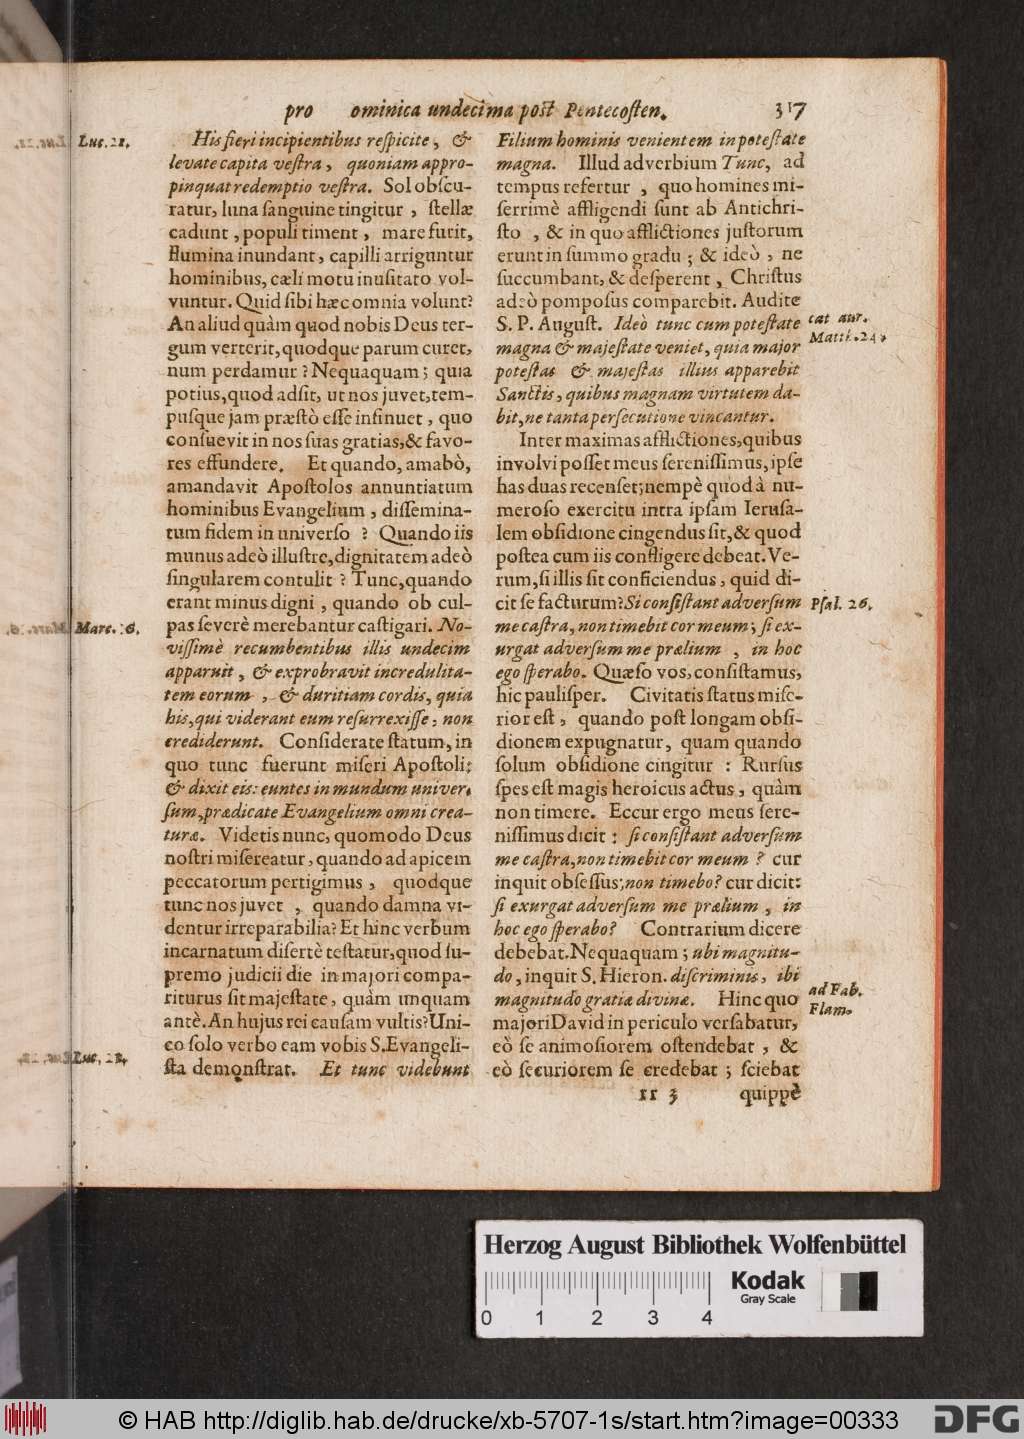 pro ominica undecima post Pentecosten. 317
Luc. 21.
His fieri incipientibus reſpicite, &
levate capita veſtra, quoniam appro-
pinquat redemptio veſtra. Sol obſcu-
ratur, luna ſanguine tingitur, ſtellæ
cadunt, populi timent, mare furit,
flumina inundant, capilli arriguntur
hominibus, cæli motu inuſitato vol-
vuntur. Quid ſibi hæc omnia volunt?
An aliud quàm quod nobis Deus ter-
gum verterit, quodque parum curet,
num perdamur? Nequaquam; quia
potius, quod adſit, ut nos juvet, tem-
puſque jam præſtò eſſe inſinuet, quo
conſuevit in nos ſuas gratias, & favo-
res effundere. Et quando, amabò,
amandavit Apoſtolos annuntiatum
hominibus Evangelium, diſſemina-
tum fidem in univerſo? Quando iis
munus adeò illuſtre, dignitatem adeò
ſingularem contulit? Tunc, quando
erant minus digni, quando ob cul-
pas ſeverè merebantur caſtigari. No-
Marc. 16.
viſſimè recumbentibus illis undecim
apparuit, & exprobravit incredulita-
tem eorum, & duritiam cordis, quia
his, qui viderant eum reſurrexiſſe, non
crediderunt. Conſiderate ſtatum, in
quo tunc fuerunt miſeri Apoſtoli:
& dixit eis: euntes in mundum univer-
ſum, prædicate Evangelium omni crea-
turæ. Videtis nunc, quomodo Deus
noſtri miſereatur, quando ad apicem
peccatorum pertigimus, quodque
tunc nos juvet, quando damna vi-
dentur irreparabilia? Et hinc verbum
incarnatum diſertè teſtatur, quod ſu-
premo judicii die in majori compa-
riturus ſit majeſtate, quàm unquam
antè. An hujus rei cauſam vultis? Uni-
co ſolo verbo eam vobis S. Evangeli-
Luc. 21.
ſta demonſtrat. Et tunc videbunt
Filium hominis venientem in poteſtate
magna. Illud adverbium Tunc, ad
tempus refertur, quo homines mi-
ſerrimè affligendi ſunt ab Antichri-
ſto, & in quo afflictiones juſtorum
erunt in ſummo gradu; & ideò, ne
ſuccumbant, & deſperent, Chriſtus
adeò pompoſus comparebit. Audite
S. P. Auguſt. Ideò tunc cum poteſtate
cat aur.
Matth. 24.
magna & majeſtate veniet, quia major
poteſtas & majeſtas illius apparebit
Sanctis, quibus magnam virtutem da-
bit, ne tanta perſecutione vincantur.
Inter maximas afflictiones, quibus
involvi poſſet meus ſereniſſimus, ipſe
has duas recenſet; nempè quod à nu-
meroſo exercitu intra ipſam Ieruſa-
lem obſidione cingendus ſit, & quod
poſtea cum iis confligere debeat. Ve-
rum, ſi illis ſit conficiendus, quid di-
cit ſe facturum? Si conſiſtant adverſum
Pſal. 26.
me caſtra, non timebit cor meum; ſi ex-
urgat adverſum me prælium, in hoc
ego ſperabo. Quæſo vos, conſiſtamus,
hic pauliſper. Civitatis ſtatus miſe-
rior eſt, quando poſt longam obſi-
dionem expugnatur, quam quando
ſolum obſidione cingitur: Rurſus
ſpes eſt magis heroicus actus, quàm
non timere. Et cur ergo meus ſere-
niſſimus dicit: ſi conſiſtant adverſum
me caſtra, non timebit cor meum? cur
inquit obſeſſus; non timebo? cur dicit:
ſi exurgat adverſum me prælium, in
hoc ego ſperabo? Contrarium dicere
debebat. Nequaquam; ubi magnitu-
do, inquit S. Hieron. diſcriminis, ibi
ad Fab.
Flam.
magnitudo gratiæ divinæ. Hinc quo
majori David in periculo verſabatur,
eò ſe animoſiorem oſtendebat, &
eò ſecuriorem ſe credebat; ſciebat
rr 3 quippè
Herzog August Bibliothek Wolfenbüttel
Kodak
Gray Scale
0 1 2 3 4
© HAB http://diglib.hab.de/drucke/xb-5707-1s/start.htm?image=00333
DFG